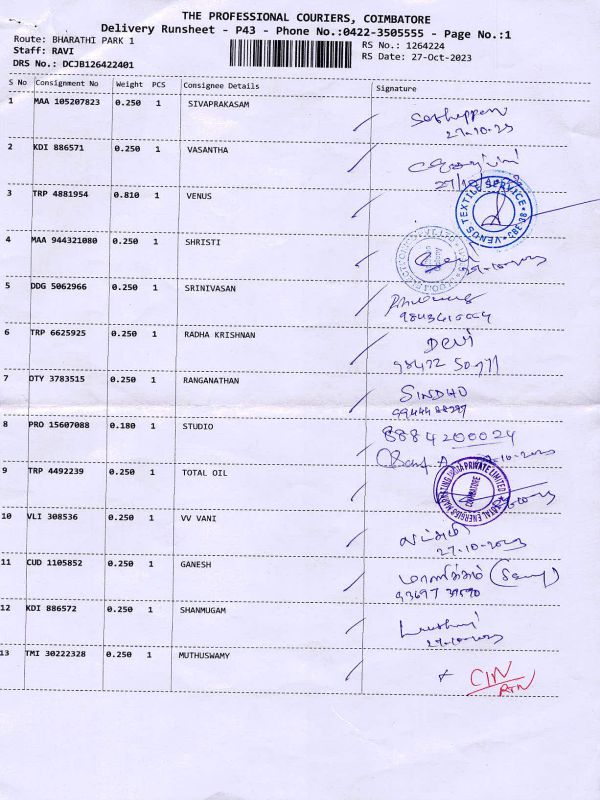 THE PROFESSIONAL COURIERS, COIMBATORE
Delivery Runsheet - P43 - Phone No.:0422-3505555 - Page No.:1
Route: BHARATHI PARK 1
RS No.: 1264224
Staff: RAVI
RS Date: 27-Oct-2023
DRS No.: DCJB126422401
S No Consignment No Weight PCS Consignee Details Signature
1 MAA 105207823 0.250 1 SIVAPRAKASAM
27-10-23
2 KDI 886571 0.250 1 VASANTHA
3 TRP 4881954 0.810 1 VENUS
VENUS TEXTILE SERVICE
4 MAA 944321080 0.250 1 SHRISTI
5 DDG 5062966 0.250 1 SRINIVASAN
6 TRP 6625925 0.250 1 RADHA KRISHNAN
Devi
7 OTY 3783515 0.250 1 RANGANATHAN
SINDHO
8 PRO 15607088 0.180 1 STUDIO
8884200024
9 TRP 4492239 0.250 1 TOTAL OIL
TOTAL ENERGIES MARKETING INDIA PRIVATE LIMITED
COIMBATORE
10 VLI 308536 0.250 1 VV VANI
27-10-2023
11 CUD 1105852 0.250 1 GANESH
மாணிக்கம்
12 KDI 886572 0.250 1 SHANMUGAM
27-10-2023
13 TMI 30222328 0.250 1 MUTHUSWAMY
CIN
RTN